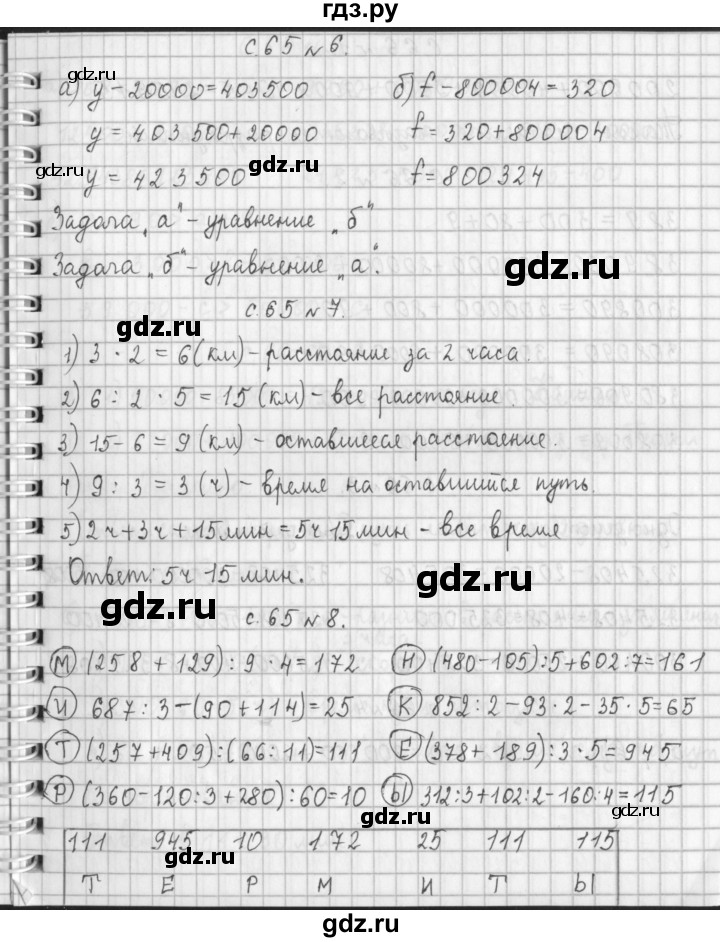 гдз.ру
с.65 №6.
а) y-20000=403500 б) f-800004=320
y = 403500+20000 f=320+800004
gdz.ru gdz.ru
y = 423500 f=800324
Задача „а" - уравнение „б"
gdz.ru
Задача „б" - уравнение „а".
с.65 №7.
gdz.ru
1) 3 · 2 = 6 (км) - расстояние за 2 часа.
2) 6 : 2 · 5 = 15 (км) - все расстояние.
3) 15-6 = 9 (км) - оставшееся расстояние.
4) 9 : 3 = 3 (ч) - время на оставшийся путь.
5) 2ч+3ч+15мин=5ч 15мин - все время
Ответ: 5ч 15 мин.
gdz.ru gdz.ru
с.65 №8.
М (258 + 129) : 9 · 4 = 172 Н (480-105):5+602:7=161
И 687 : 3-(90+114)=25 К 852:2-93·2-35·5=65
Т (257+409):(66:11)=111 Е (378+189):3·5=945
gdz.ru
Р (360-120:3+280):60=10 Ы 312:3+102:2-160:4=115
gdz.ru gdz.ru
111 945 10 172 25 111 115
gdz.ru
Т Е Р М И Т Ы
gdz.ru